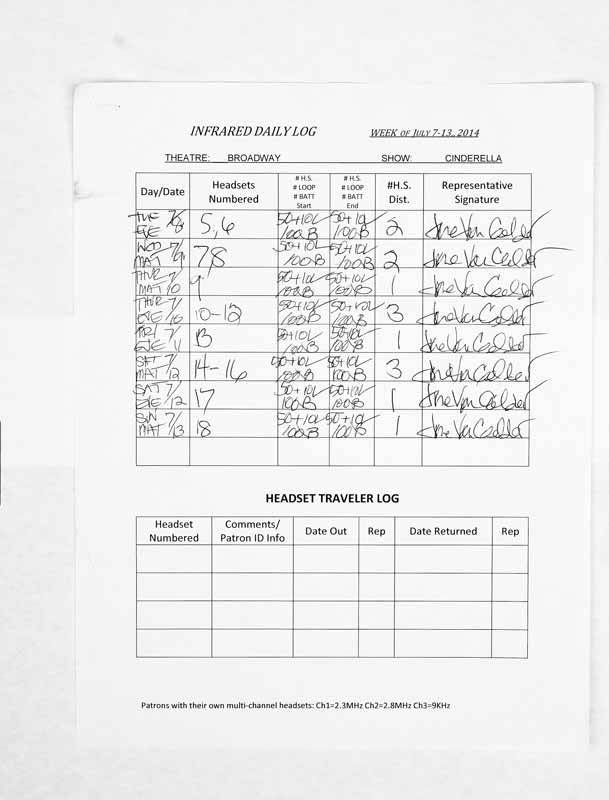 INFRARED DAILY LOG WEEK OF JULY 7-13, 2014
THEATRE: BROADWAY SHOW: CINDERELLA
Day/Date
Headsets
Numbered
# H.S.
# LOOP
# BATT
Start
# H.S.
# LOOP
# BATT
End
#H.S.
Dist.
Representative
Signature
TUE 7/8
EVE
5,6
50+10L
100B
50+10L
100B
2
WED 7/9
MAT
7,8
50+10L
100B
50+10L
100B
2
THUR 7/10
MAT
9
50+10L
100B
50+10L
100B
1
THUR 7/10
EVE
10-12
50+10L
100B
50+10L
100B
3
FRI 7/11
EVE
13
50+10L
100B
50+10L
100B
1
SAT 7/12
MAT
14-16
50+10L
100B
50+10L
100B
3
SAT 7/12
EVE
17
50+10L
100B
50+10L
100B
1
SUN 7/13
MAT
18
50+10L
100B
50+10L
100B
1
HEADSET TRAVELER LOG
Headset
Numbered
Comments/
Patron ID Info
Date Out
Rep
Date Returned
Rep
Patrons with their own multi-channel headsets: Ch1=2.3MHz Ch2=2.8MHz Ch3=9KHz